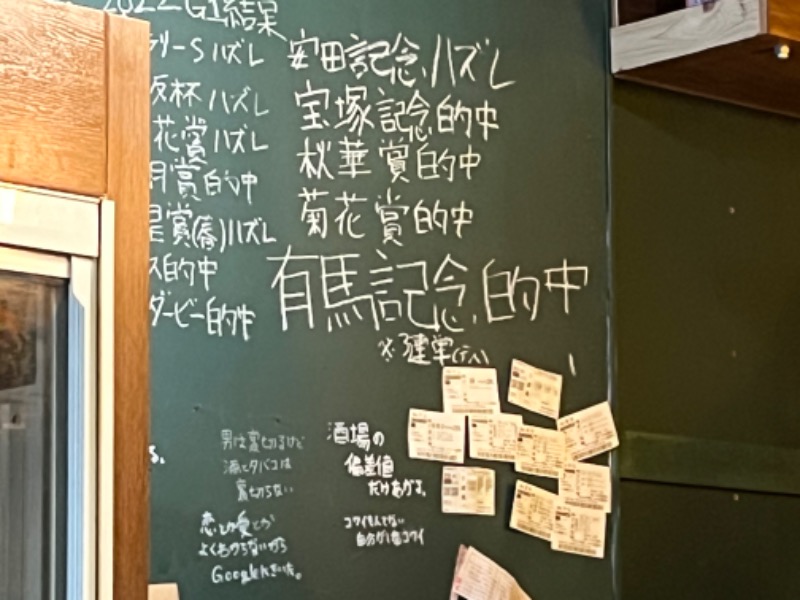 2022 G1結果
ラリーS ハズレ
阪杯 ハズレ
花賞 ハズレ
月賞 的中
賞(春) ハズレ
ス 的中
ダービー 的中
安田記念 ハズレ
宝塚記念 的中
秋華賞 的中
菊花賞 的中
有馬記念 的中
男は裏切るけど
酒とタバコは
裏切らない
恋とか愛とか
よくわからないから
Googleにきいた。
酒場の
偏差値
だけあがる。